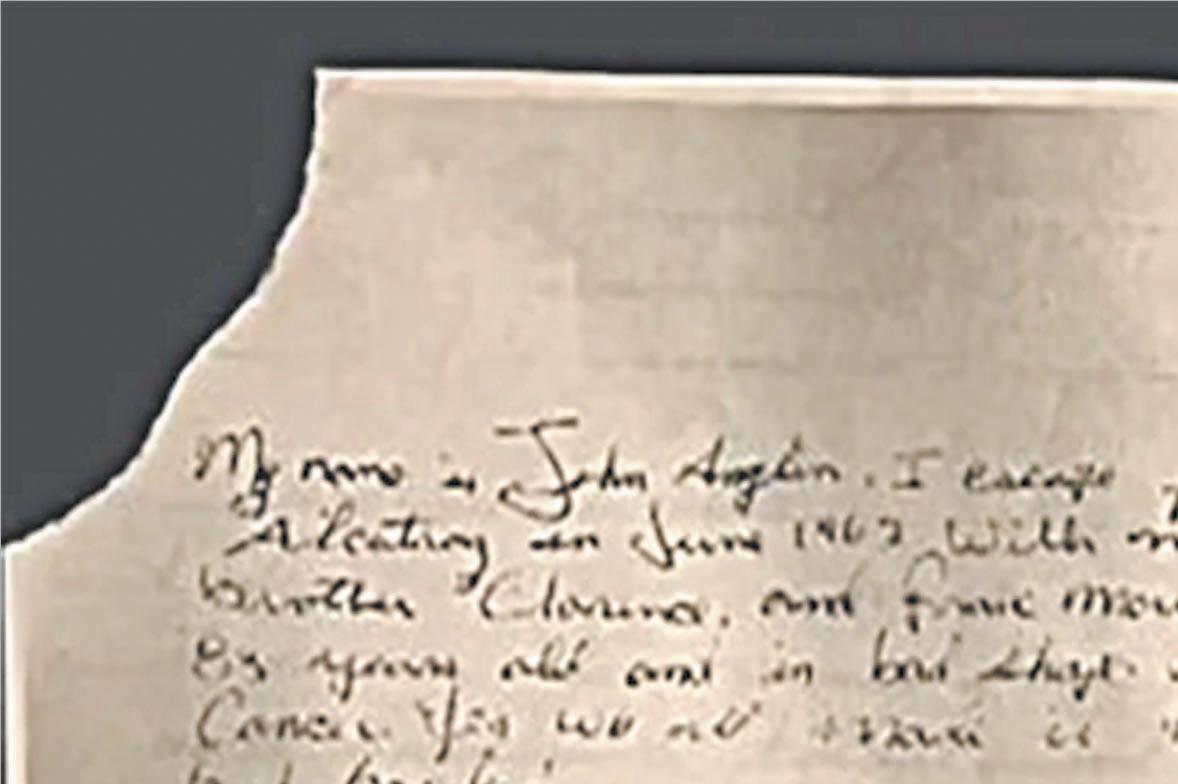 My name is John Anglin. I escape
Alcatraz in June 1962 With
brother Clarence, and Frank
83 years old and in bad shape
Cancer. Yes we all